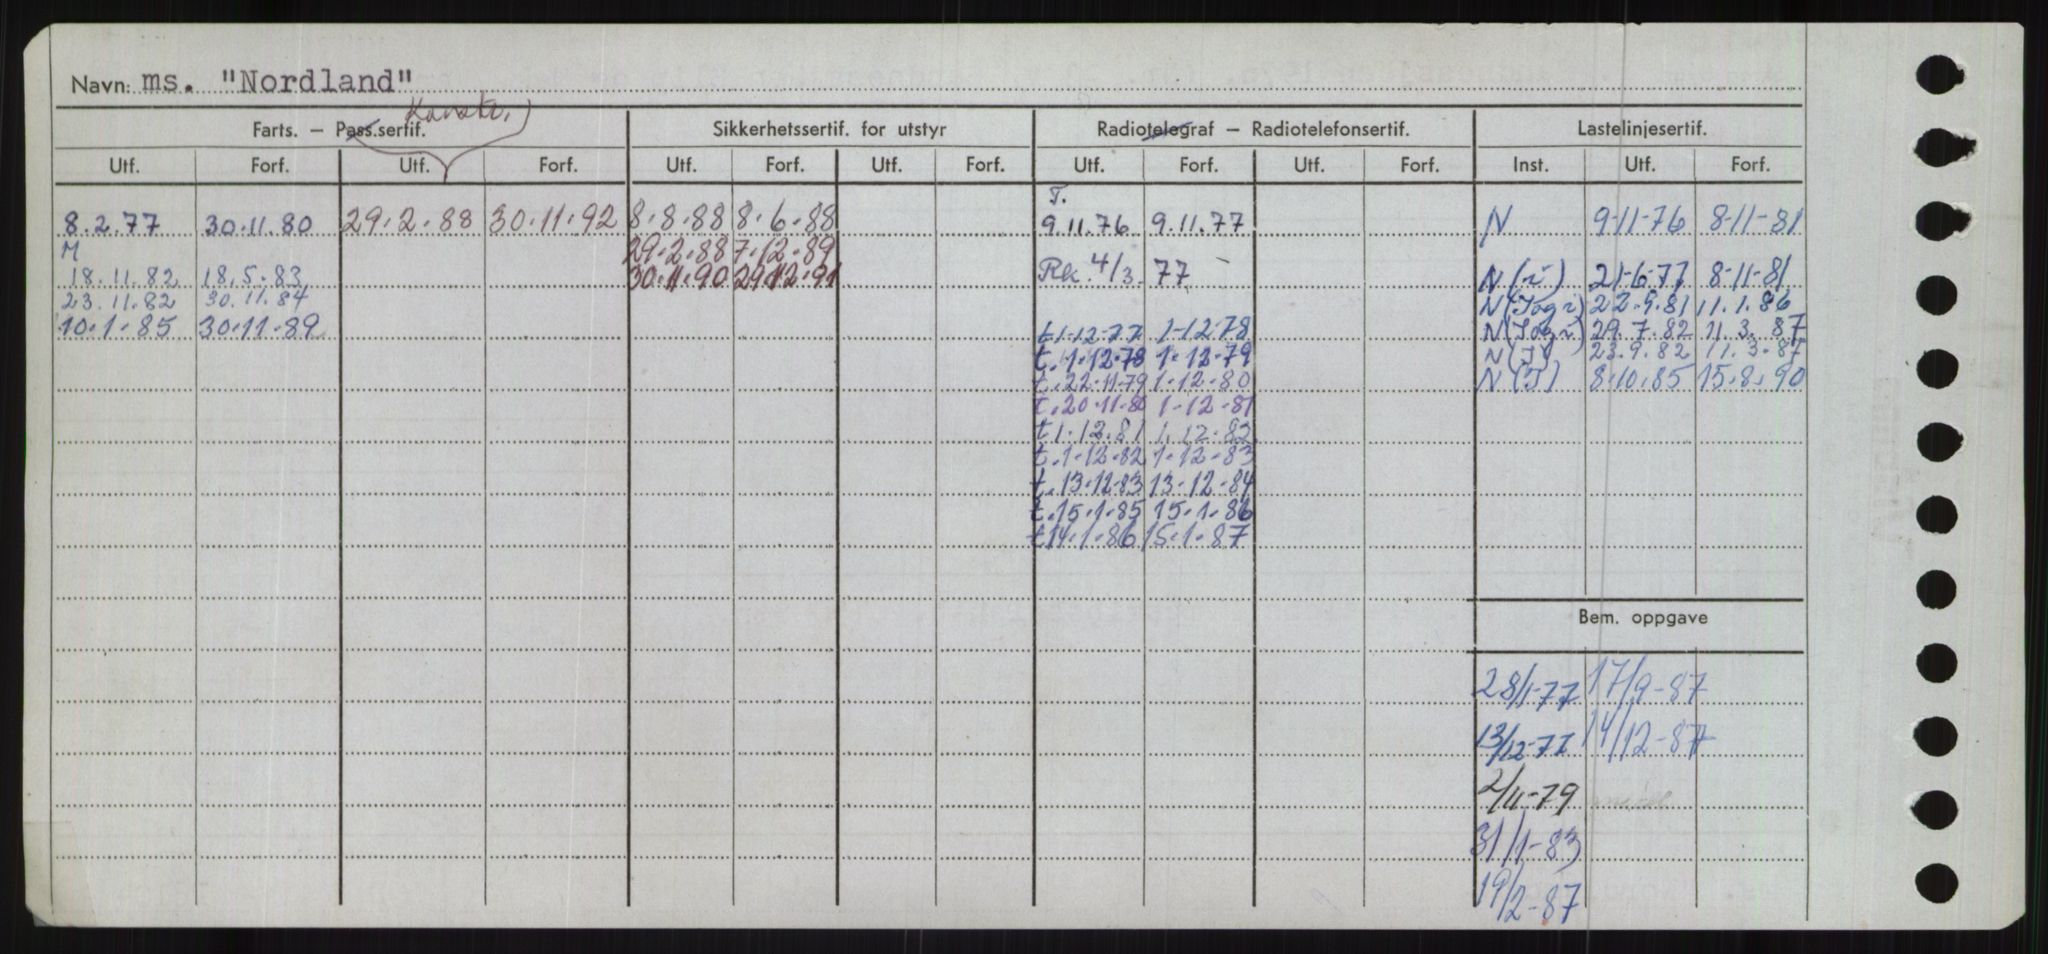 Navn: ms. "Nordland"
Konstr.
Farts. – Pass.sertif. Sikkerhetssertif. for utstyr Radiotelegraf – Radiotelefonsertif. Lastelinjesertif.
Utf. Forf. Utf. Forf. Utf. Forf. Utf. Forf. Utf. Forf. Utf. Forf. Inst. Utf. Forf.
T.
8.2.77 30.11.80 29.2.88 30.11.92 8.8.88 8.6.88 9.11.76 9.11.77 N 9-11-76 8-11-81
M 29.2.88 7.12.89
18.11.82 18.5.83 30.11.90 29.12.91 Rk. 4/3. 77 N(i) 21-6-77 8-11-81
23.11.82 30.11.84 N(Iogi) 22.9.81 11.1.86
10.1.85 30.11.89 t1-12-77 1-12-78 N(Iogi) 29.7.82 11.3.87
t.1.12.78 1.12.79 N(I) 23.9.82 11.3.87
t.22.11.79 1.12.80 N(I) 8.10.85 15.8.90
t.20.11.80 1-12-81
t1.12.81 1.12.82
t.1-12-82 1-12-83
t.13.12.83 13-12-84
t.15.1.85 15.1.86
t14.1.86 15.1.87
Bem. oppgave
28/1-77 17/9-87
13/12-77 14/12-87
2/11-79
31/1-83
19/2-87